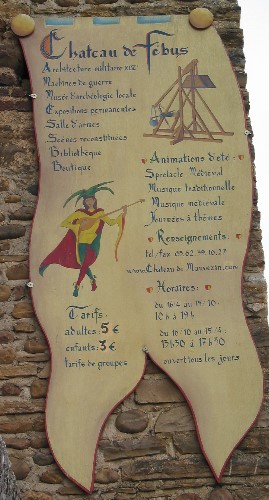 Chateau de Fébus
Architecture militaire XIVe
Machines de guerre
Musée d'archéologie locale
Expositions permanentes
Salle d'armes
Scènes reconstituées
Bibliothèque
Boutique
Animations d'été:
Spectacle Médiéval
Musique traditionnelle
Musique médiévale
Journées à thèmes
Renseignements:
tél/fax 05.62.39.10.27
www.Chateau de Mauvezin.com
Horaires:
du 16/4 au 15/10:
10h à 19h
du 16/10 au 15/4:
13h30 à 17h30
ouvert tous les jours
Tarifs:
adultes: 5€
enfants: 3€
tarifs de groupes